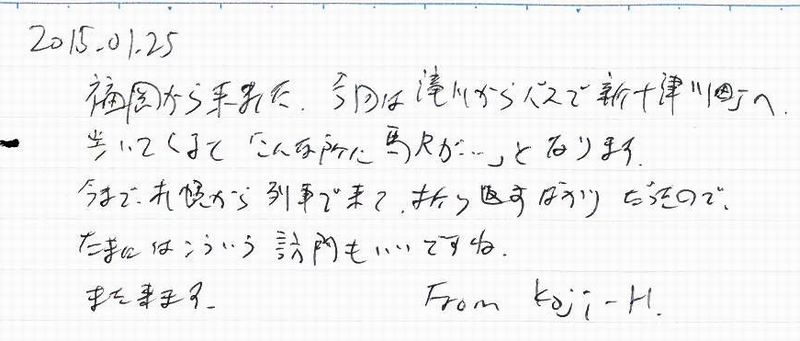 2015.01.25
福岡から来ました. 今回は滝川からバスで新十津川町へ.
歩いてくると「こんな所に駅が…」となります.
今まで、札幌から列車で来て、折り返すばかりだったので、
たまにはこういう訪問もいいですね.
また来ます. From Koji-H.